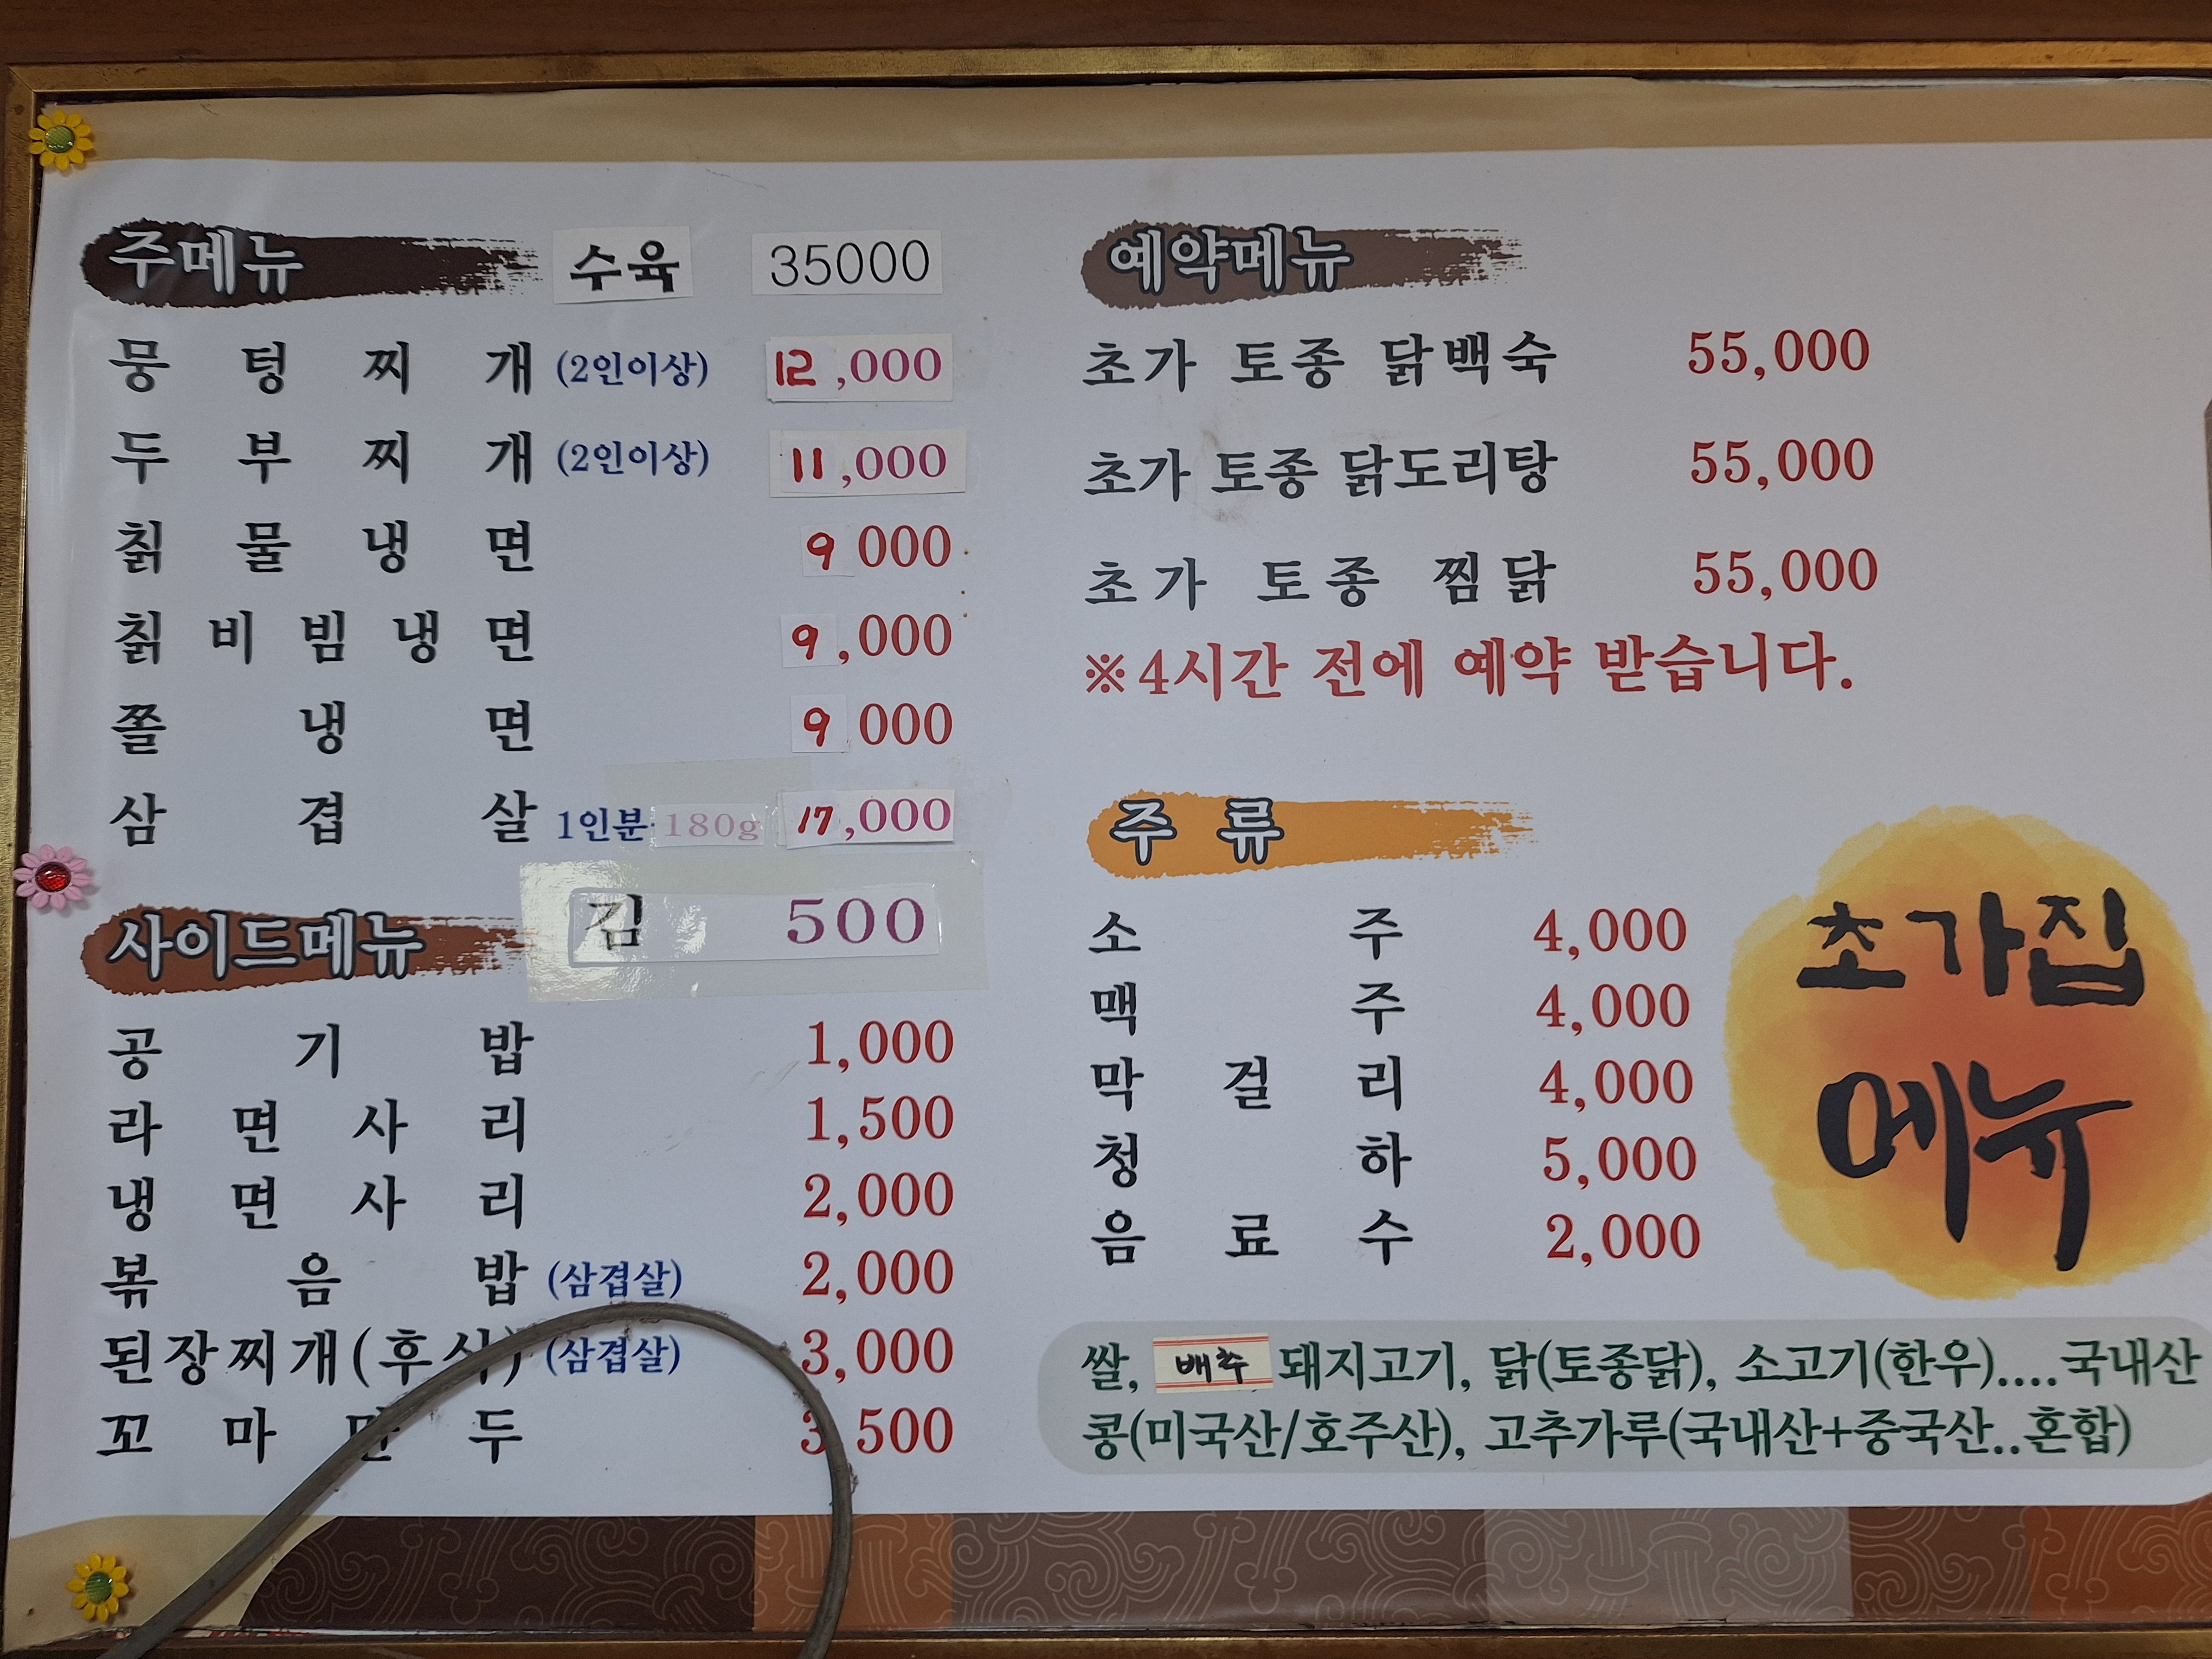 주메뉴 수육 35000
뭉텅찌개 (2인이상) 12,000
두부찌개 (2인이상) 11,000
칡물냉면 9 000
칡비빔냉면 9,000
쫄냉면 9 000
삼겹살 1인분 180g 17,000
사이드메뉴 김 500
공기밥 1,000
라면사리 1,500
냉면사리 2,000
볶음밥 (삼겹살) 2,000
된장찌개(후식) (삼겹살) 3,000
꼬마만두 3,500
예약메뉴
초가 토종 닭백숙 55,000
초가 토종 닭도리탕 55,000
초가 토종 찜닭 55,000
※4시간 전에 예약 받습니다.
주류
소주 4,000
맥주 4,000
막걸리 4,000
청하 5,000
음료수 2,000
초가집
메뉴
쌀, 배추 돼지고기, 닭(토종닭), 소고기(한우)....국내산
콩(미국산/호주산), 고추가루(국내산+중국산..혼합)